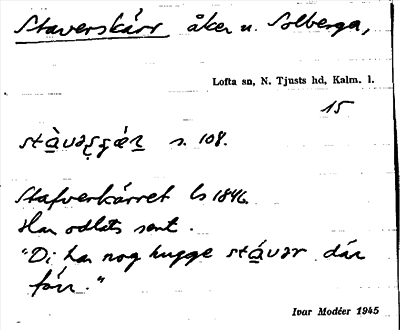 Staverskärr åker u. Solberga,
Lofta sn, N. Tjusts hd, Kalm. l.
15
s. 108.
Stafverkärret Ls 1846
Har odlats sent.
"Di har nog hugge stávər där
förr."
Ivar Modéer 1945